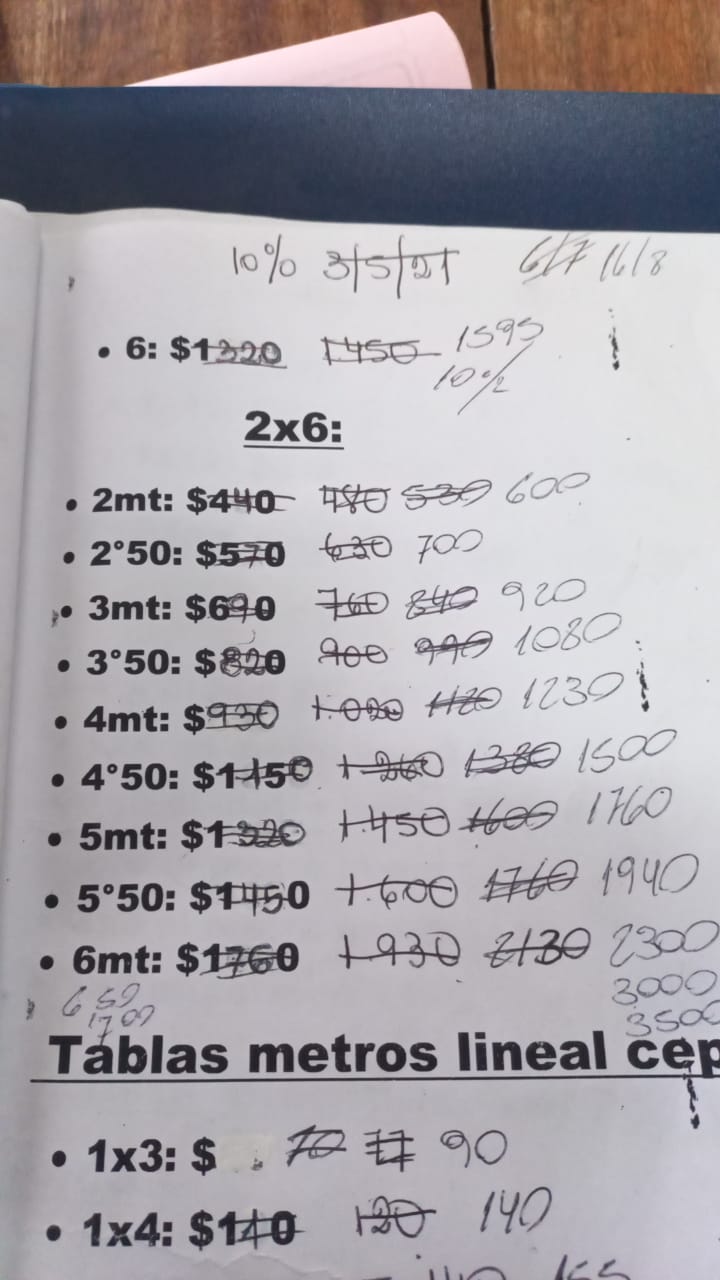 10% 3/5/21 6/7 16/8
• 6: $1320 1450 1595
10%
2x6:
• 2mt: $440 480 530 600
• 2°50: $570 630 700
• 3mt: $690 760 840 920
• 3°50: $820 900 990 1080
• 4mt: $930 1.020 1120 1230
• 4°50: $1150 1260 1380 1500
• 5mt: $1320 1.450 1600 1760
• 5°50: $1450 1.600 1760 1940
• 6mt: $1760 1.930 2130 2300
3000
3500
Tablas metros lineal cep
• 1x3: $ 70 77 90
• 1x4: $110 120 140